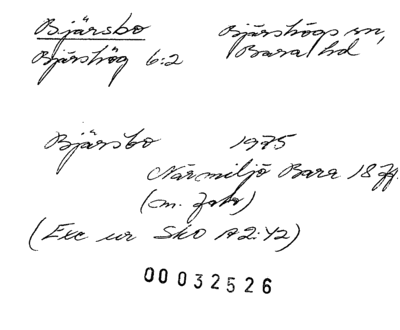 Bjärsbo Bjärshögs sn,
Bjärshög 6:2 Bara hd
Bjärsbo 1975
Närmiljö Bara 18 ff.
(m. foto)
(Exc ur Sko A2:42)
00032526